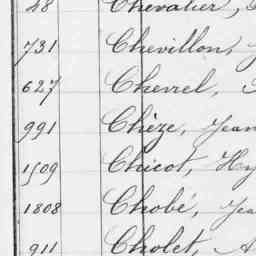 28 Chevalier,
731 Chevillon,
627 Chevrel,
991 Chèze, Jean
1509 Chicot, Hy
1808 Chobé, Jea
911 Cholet, A